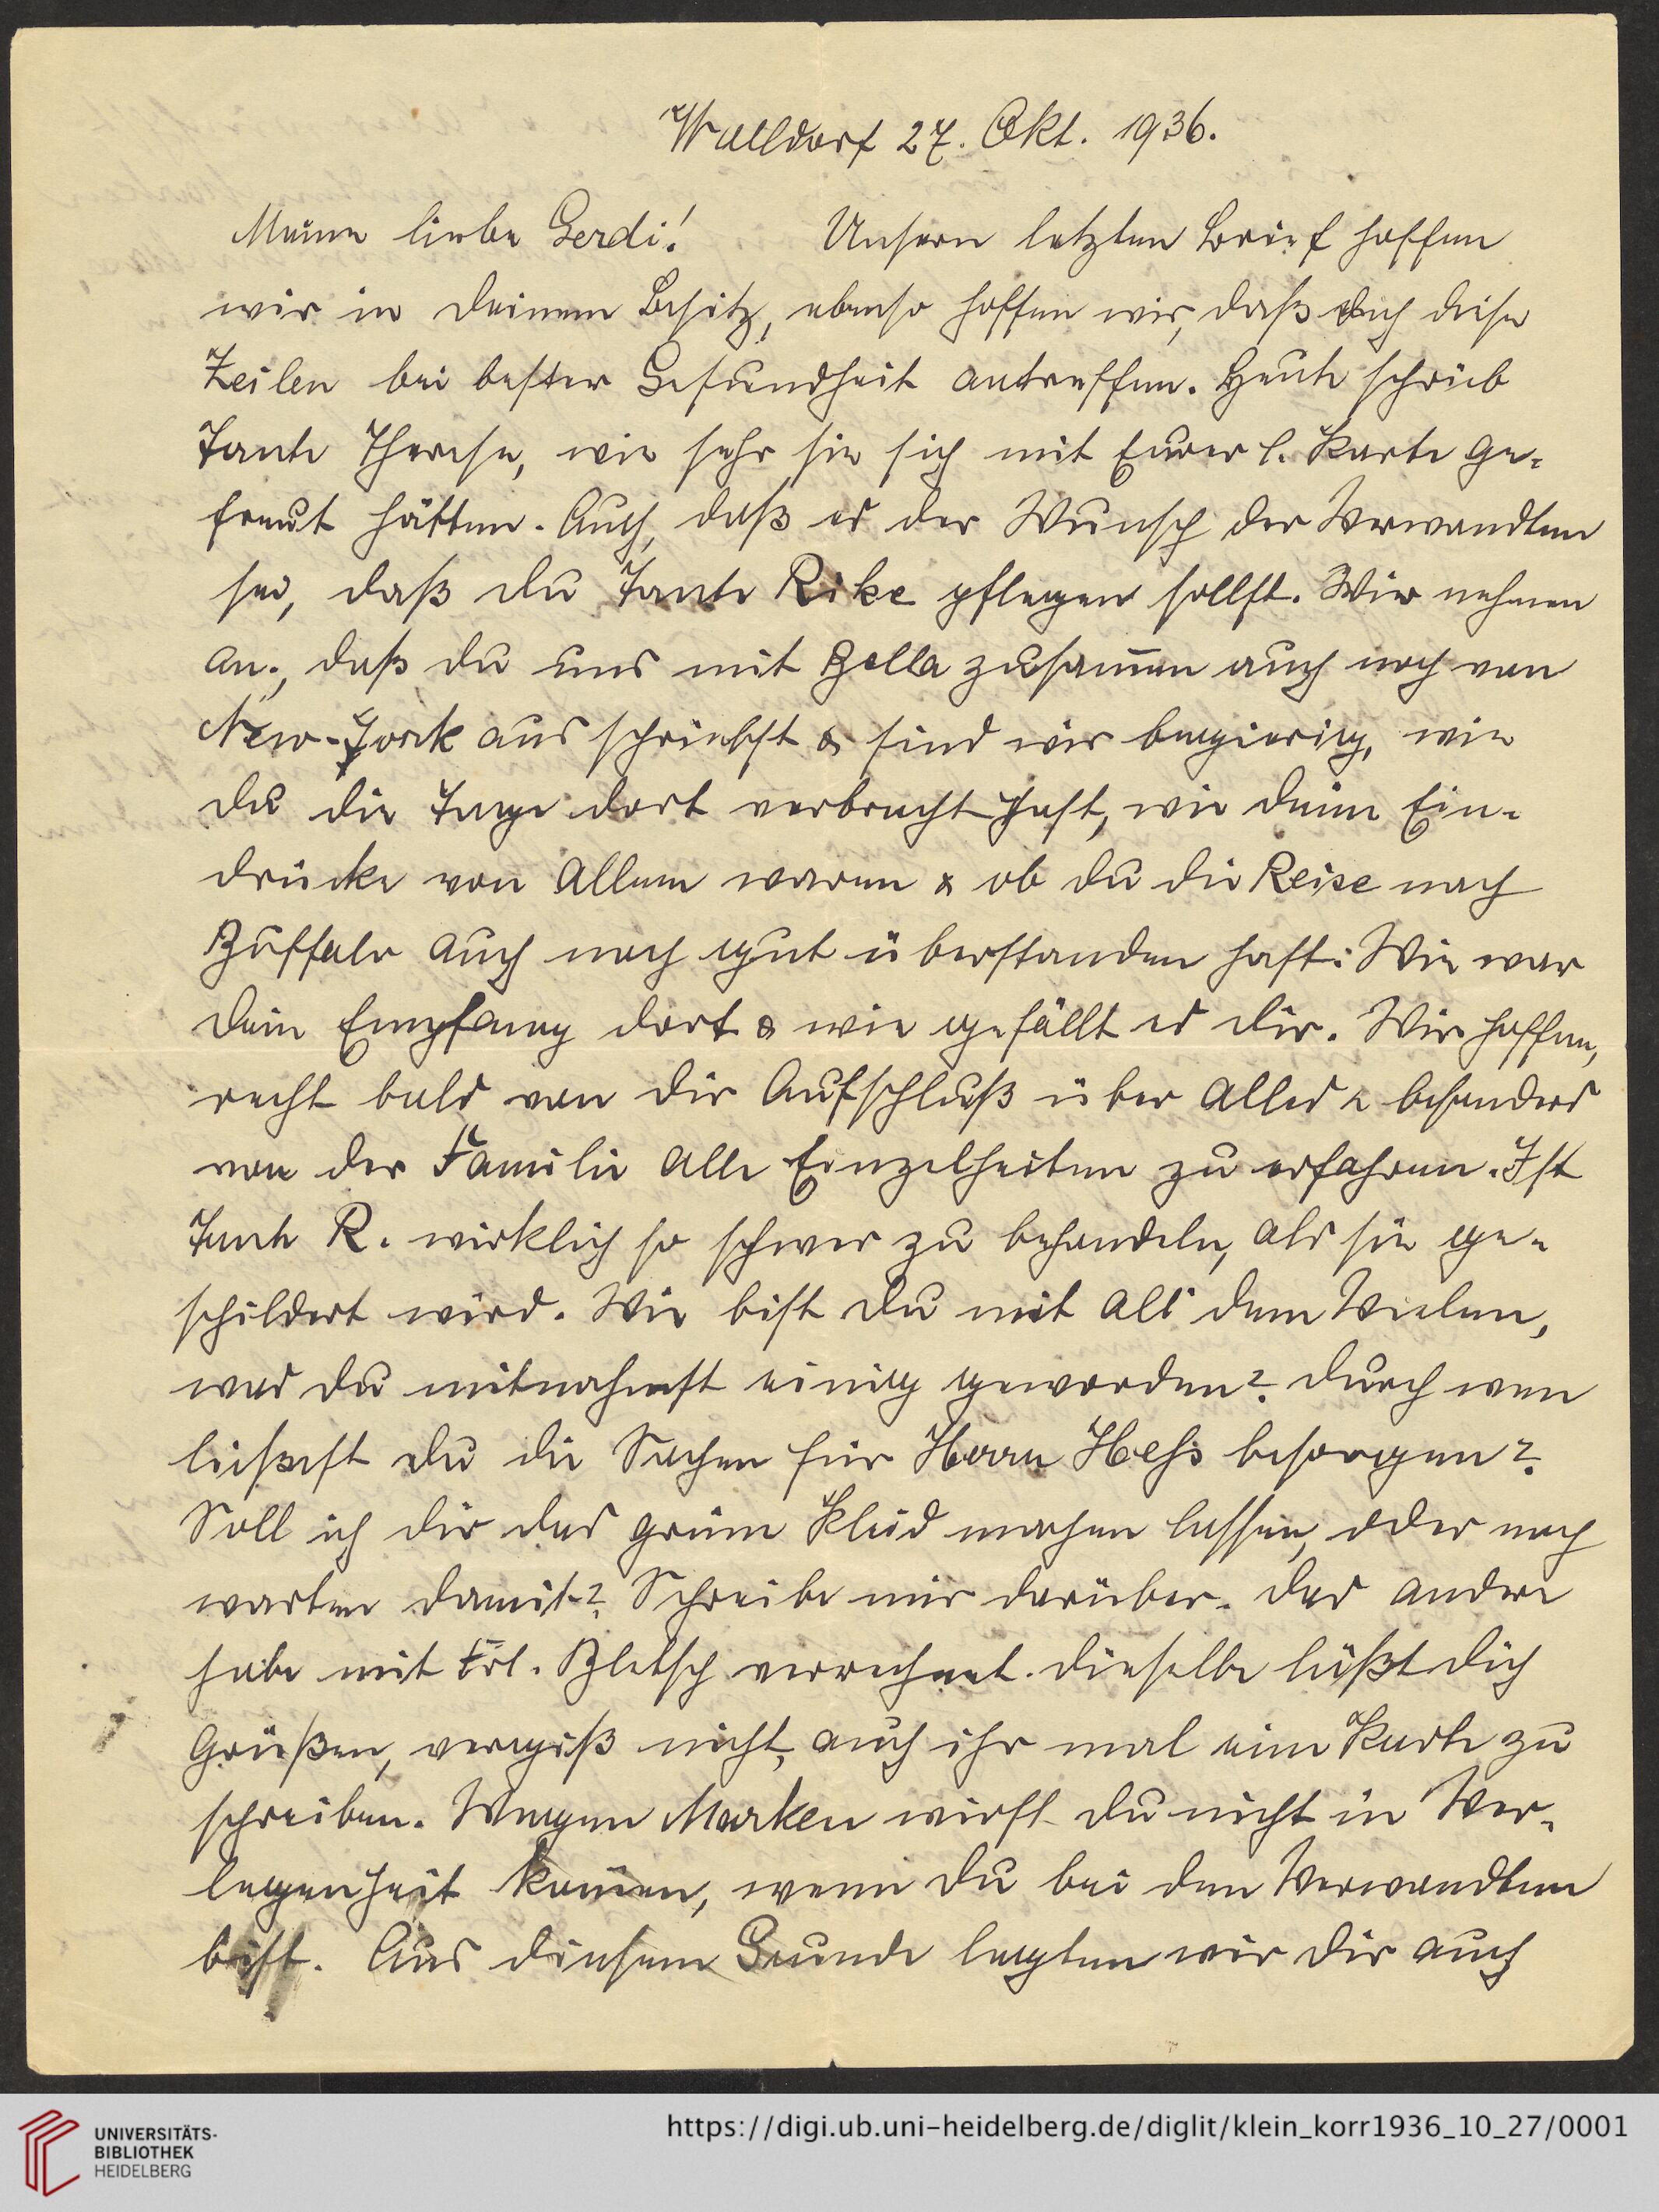 Walldorf 27. Okt. 1936.
Meine liebe Gerdi! Unsern letzten Brief hoffen
wir in deinem Besitz, ebenso hoffen wir, daß dich diese
Zeilen bei bester Gesundheit antreffen. Heute schrieb
Tante Therese, wie sehr sie sich mit Eurer l. Karte ge-
freut hätten. Auch, daß es der Wunsch der Verwandten
sei, daß du Tante Rike pflegen sollst. Wir nehmen
an, daß du uns mit Bella zusam̅en auch noch von
New-York aus schriebst & sind wir begierig, wie
du die Tage dort verbracht hast, wie deine Ein-
drücke von Allem waren & ob du die Reise nach
Buffalo auch noch gut überstanden hast. Wie war
dein Empfang dort & wie gefällt es dir. Wir hoffen,
recht bald von dir Aufschluß über Alles & besonders
von der Familie alle Einzelheiten zu erfahren. Ist
Tante R. wirklich so schwer zu behandeln, als sie ge-
schildert wird. Wie bist du mit all dem Vielen,
was du mitnahmst einig geworden? Durch wen
ließest du die Sachen für Herrn Heß besorgen?
Soll ich dir das grüne Kleid machen lassen, oder noch
warten damit? Schreibe mir darüber. Das andere
habe mit Frl. Bletsch verrechnet. Dieselbe läßt dich
Grüßen, vergiß nicht, auch ihr mal eine Karte zu
schreiben. Wegen Marken wirst du nicht in Ver-
legenheit kom̅en, wenn du bei den Verwandten
bist. Aus diesem Grunde legten wir dir auch
UNIVERSITÄTS-
BIBLIOTHEK
HEIDELBERG
https://digi.ub.uni-heidelberg.de/diglit/klein_korr1936_10_27/0001